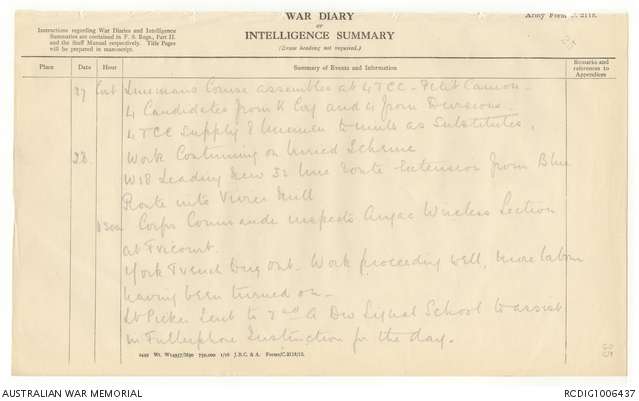 WAR DIARY
or
INTELLIGENCE SUMMARY
(Erase heading not required.)
Army Form C. 2118.
Instructions regarding War Diaries and Intelligence
Summaries are contained in F. S. Regs., Part II.
and the Staff Manual respectively. Title Pages
will be prepared in manuscript.
Place Date Hour Summary of Events and Information Remarks and references to Appendices
27 Linemans Course assembles at 4 TCC - Petit Camon.
4 Candidates from K Coy and 4 from Divisions.
4 TCC Supply 8 linemen to units as Substitutes.
28 Work Continuing on buried Scheme
W18 Leading New 32 line route extension from Blue
Route into Vivier Mill
Corps Commander inspects Anzac Wireless Section
at Fricourt.
York Trench Dug out. Work proceeding well, more labour
having been turned on.
Lt Picker Sent to 2nd A Div Signal School to assist
in Fullerphone Instruction for the day.
2449 Wt. W14957/M90 750,000 1/16 J.B.C. & A. Forms/C.2118/12.
35
AUSTRALIAN WAR MEMORIAL
RCDIG1006437